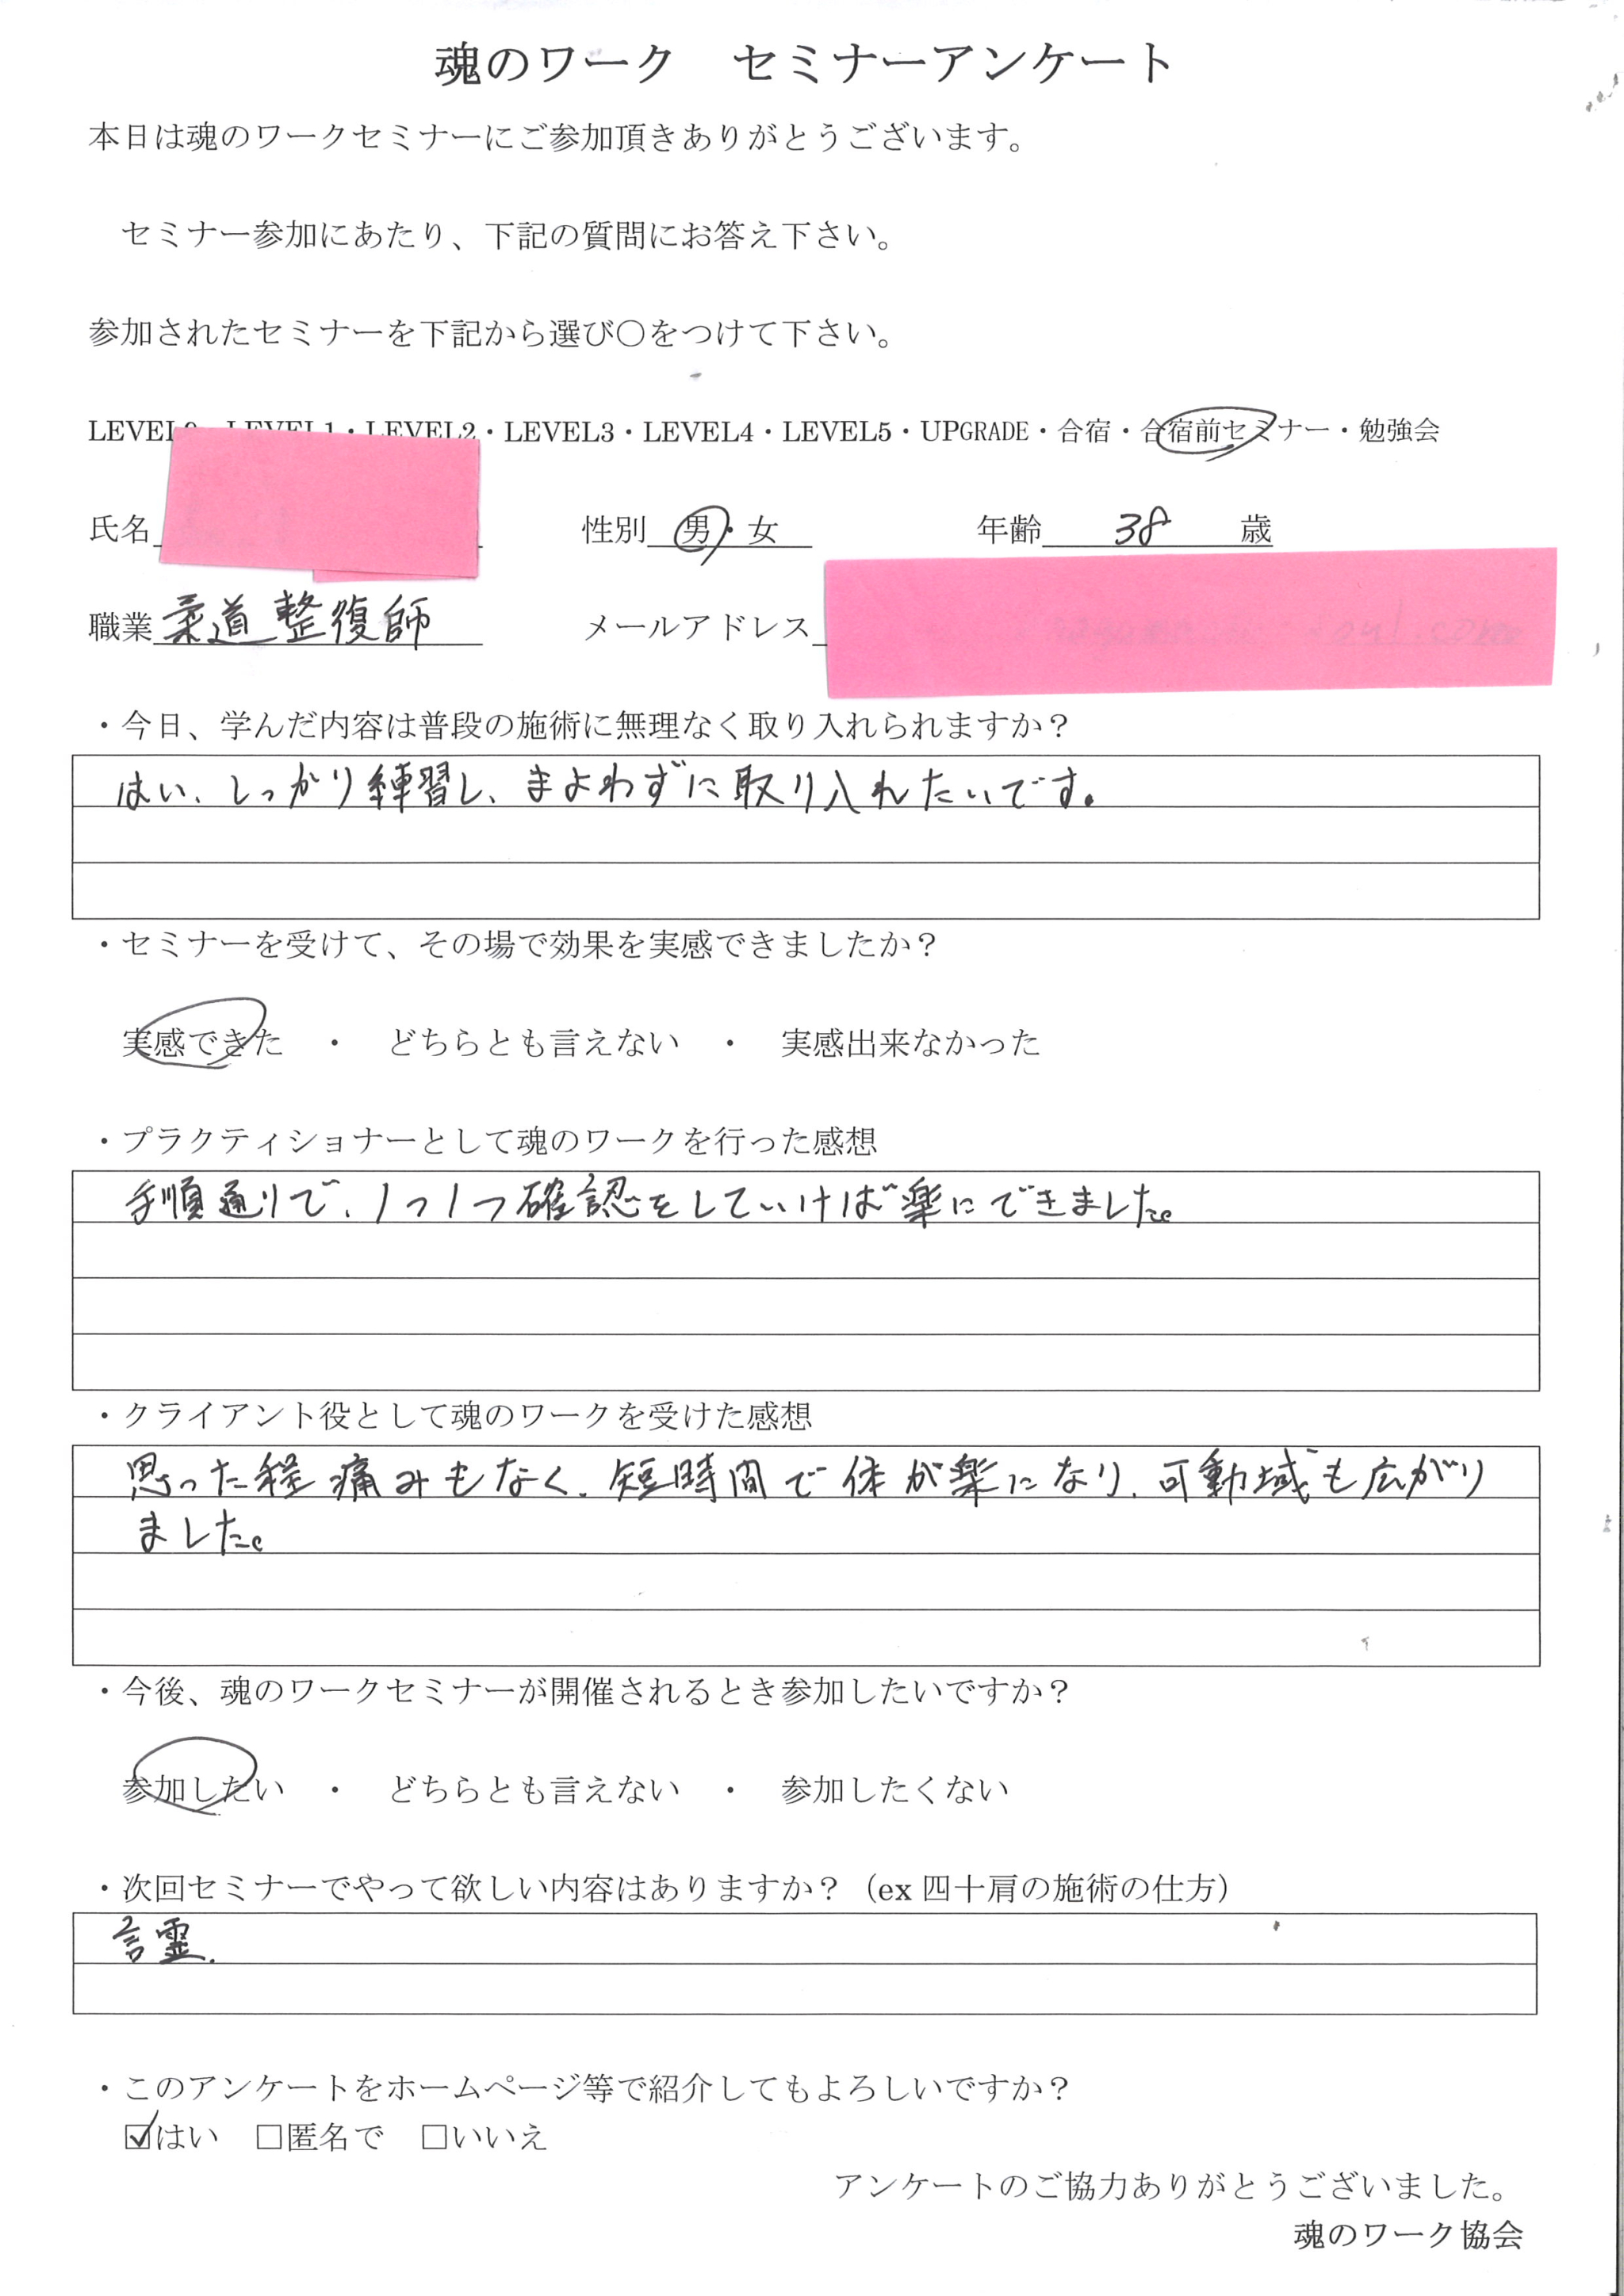 魂のワーク　セミナーアンケート
本日は魂のワークセミナーにご参加頂きありがとうございます。
セミナー参加にあたり、下記の質問にお答え下さい。
参加されたセミナーを下記から選び〇をつけて下さい。
LEVEL0・LEVEL1・LEVEL2・LEVEL3・LEVEL4・LEVEL5・UPGRADE・合宿・合宿前セミナー・勉強会
氏名 性別 男・女 年齢 38 歳
職業 柔道整復師 メールアドレス
・今日、学んだ内容は普段の施術に無理なく取り入れられますか？
はい、しっかり練習し、まよわずに取り入れたいです。
・セミナーを受けて、その場で効果を実感できましたか？
実感できた　・　どちらとも言えない　・　実感出来なかった
・プラクティショナーとして魂のワークを行った感想
手順通りで、1つ1つ確認をしていけば楽にできました。
・クライアント役として魂のワークを受けた感想
思った程痛みもなく、短時間で体が楽になり、可動域も広がり
ました。
・今後、魂のワークセミナーが開催されるとき参加したいですか？
参加したい　・　どちらとも言えない　・　参加したくない
・次回セミナーでやって欲しい内容はありますか？（ex 四十肩の施術の仕方）
言霊.
・このアンケートをホームページ等で紹介してもよろしいですか？
☑はい　□匿名で　□いいえ
アンケートのご協力ありがとうございました。
魂のワーク協会